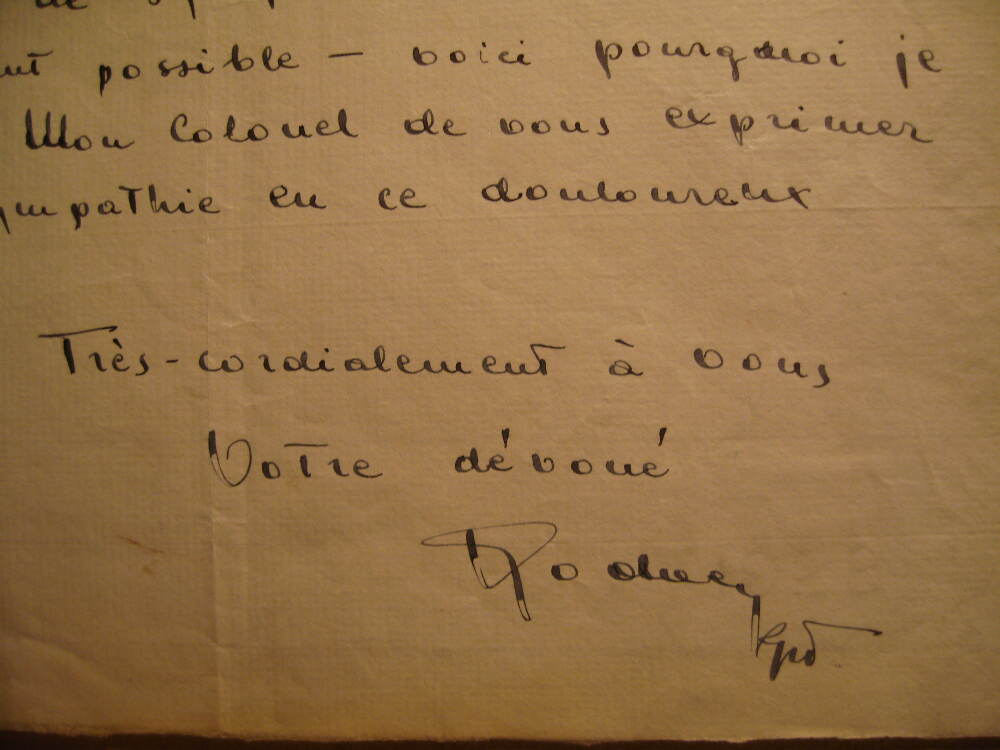 de
possible — voici pourquoi je
Mon Colonel de vous exprimer
ympathie en ce douloureux
Très-cordialement à vous
Votre dévoué
Rodney